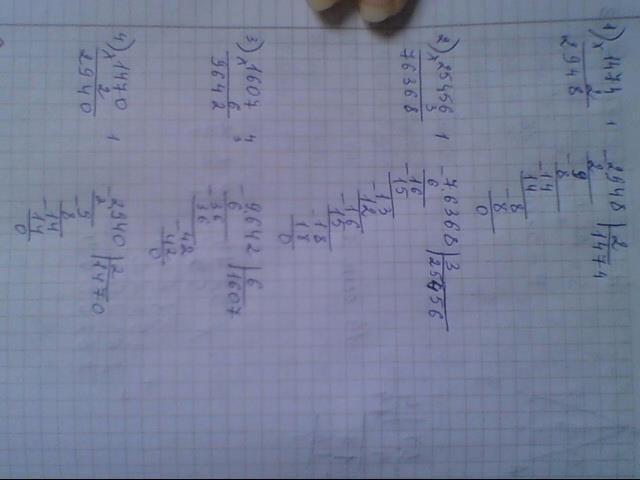 1) x 1474
2
2948
- 2948 | 2
2 | 1474
- 9
8
- 14
14
- 8
8
0
2) x 25456
3
76368
- 76368 | 3
6 | 25456
- 16
15
- 13
12
- 16
15
- 18
18
0
3) x 1607
6
9642
- 9642 | 6
6 | 1607
- 36
36
- 42
42
0
4) x 1470
2
2940
- 2940 | 2
2 | 1470
- 9
8
- 14
14
0